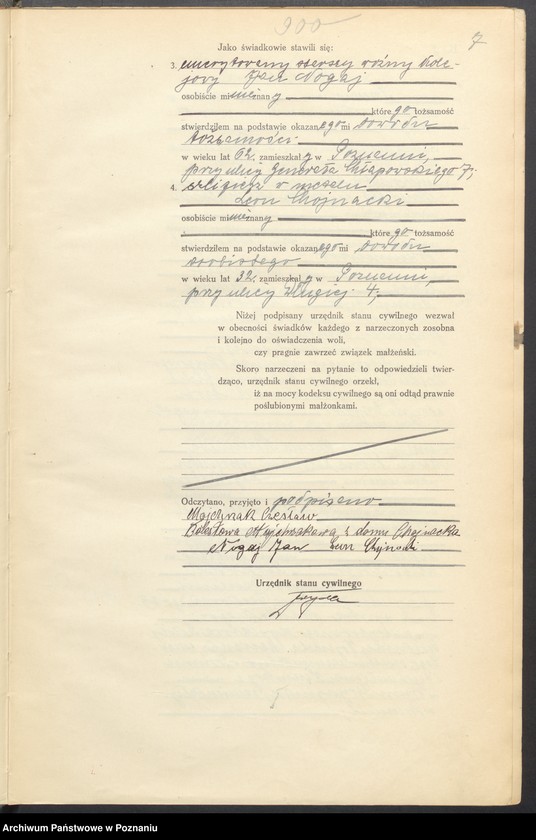 300
7
Jako świadkowie stawili się:
3. emerytowany starszy woźny kole-
jowy Jan Nogaj
osobiście mi nieznany
którego tożsamość
stwierdziłem na podstawie okazanego mi dowodu
tożsamości
w wieku lat 62, zamieszkały w Poznaniu,
przy ulicy Generała Chłapowskiego 7;
4.
Leon Chojnacki
osobiście mi nieznany
którego tożsamość
stwierdziłem na podstawie okazanego mi dowodu
osobistego
w wieku lat 32, zamieszkały w Poznaniu,
przy ulicy Długiej 4,
Niżej podpisany urzędnik stanu cywilnego wezwał
w obecności świadków każdego z narzeczonych zosobna
i kolejno do oświadczenia woli,
czy pragnie zawrzeć związek małżeński.
Skoro narzeczeni na pytanie to odpowiedzieli twier-
dząco, urzędnik stanu cywilnego orzekł,
iż na mocy kodeksu cywilnego są oni odtąd prawnie
poślubionymi małżonkami.
Odczytano, przyjęto i podpisano
Wojchnak Czesław
z domu Chojnacka
Nogaj Jan Leon Chojnacki
Urzędnik stanu cywilnego
Archiwum Państwowe w Poznaniu